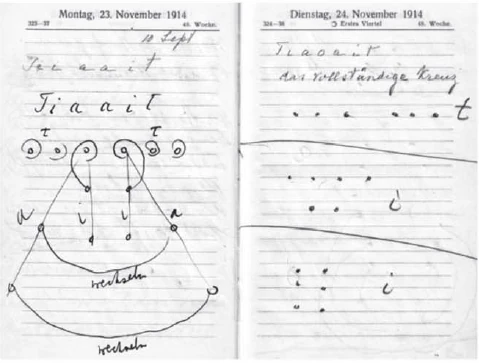 Montag, 23. November 1914
327—37
48. Woche.
10 Sept
T i a a i t
T i a a i T
τ τ
a i i a
wechseln
wechseln
Dienstag, 24. November 1914
328—36
☽ Erstes Viertel
48. Woche.
T i a o a i t
das vollständige Kreuz
t
i
i